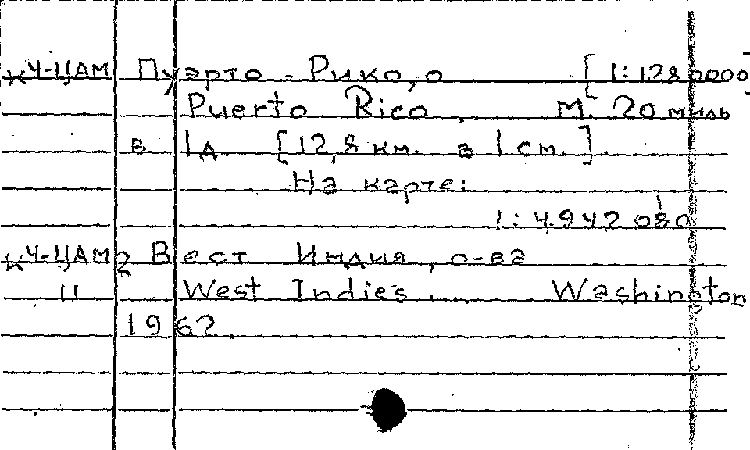 к4-ЦАМ Пуэрто - Рико, о [1:1280000]
Puerto Rico. М. 20 миль
в 1д [12,8 км. в 1 см.]
На карте:
1:4942080
к4-ЦАМ2 Вест Индия, о-ва
11 West Indies Washington
1962.